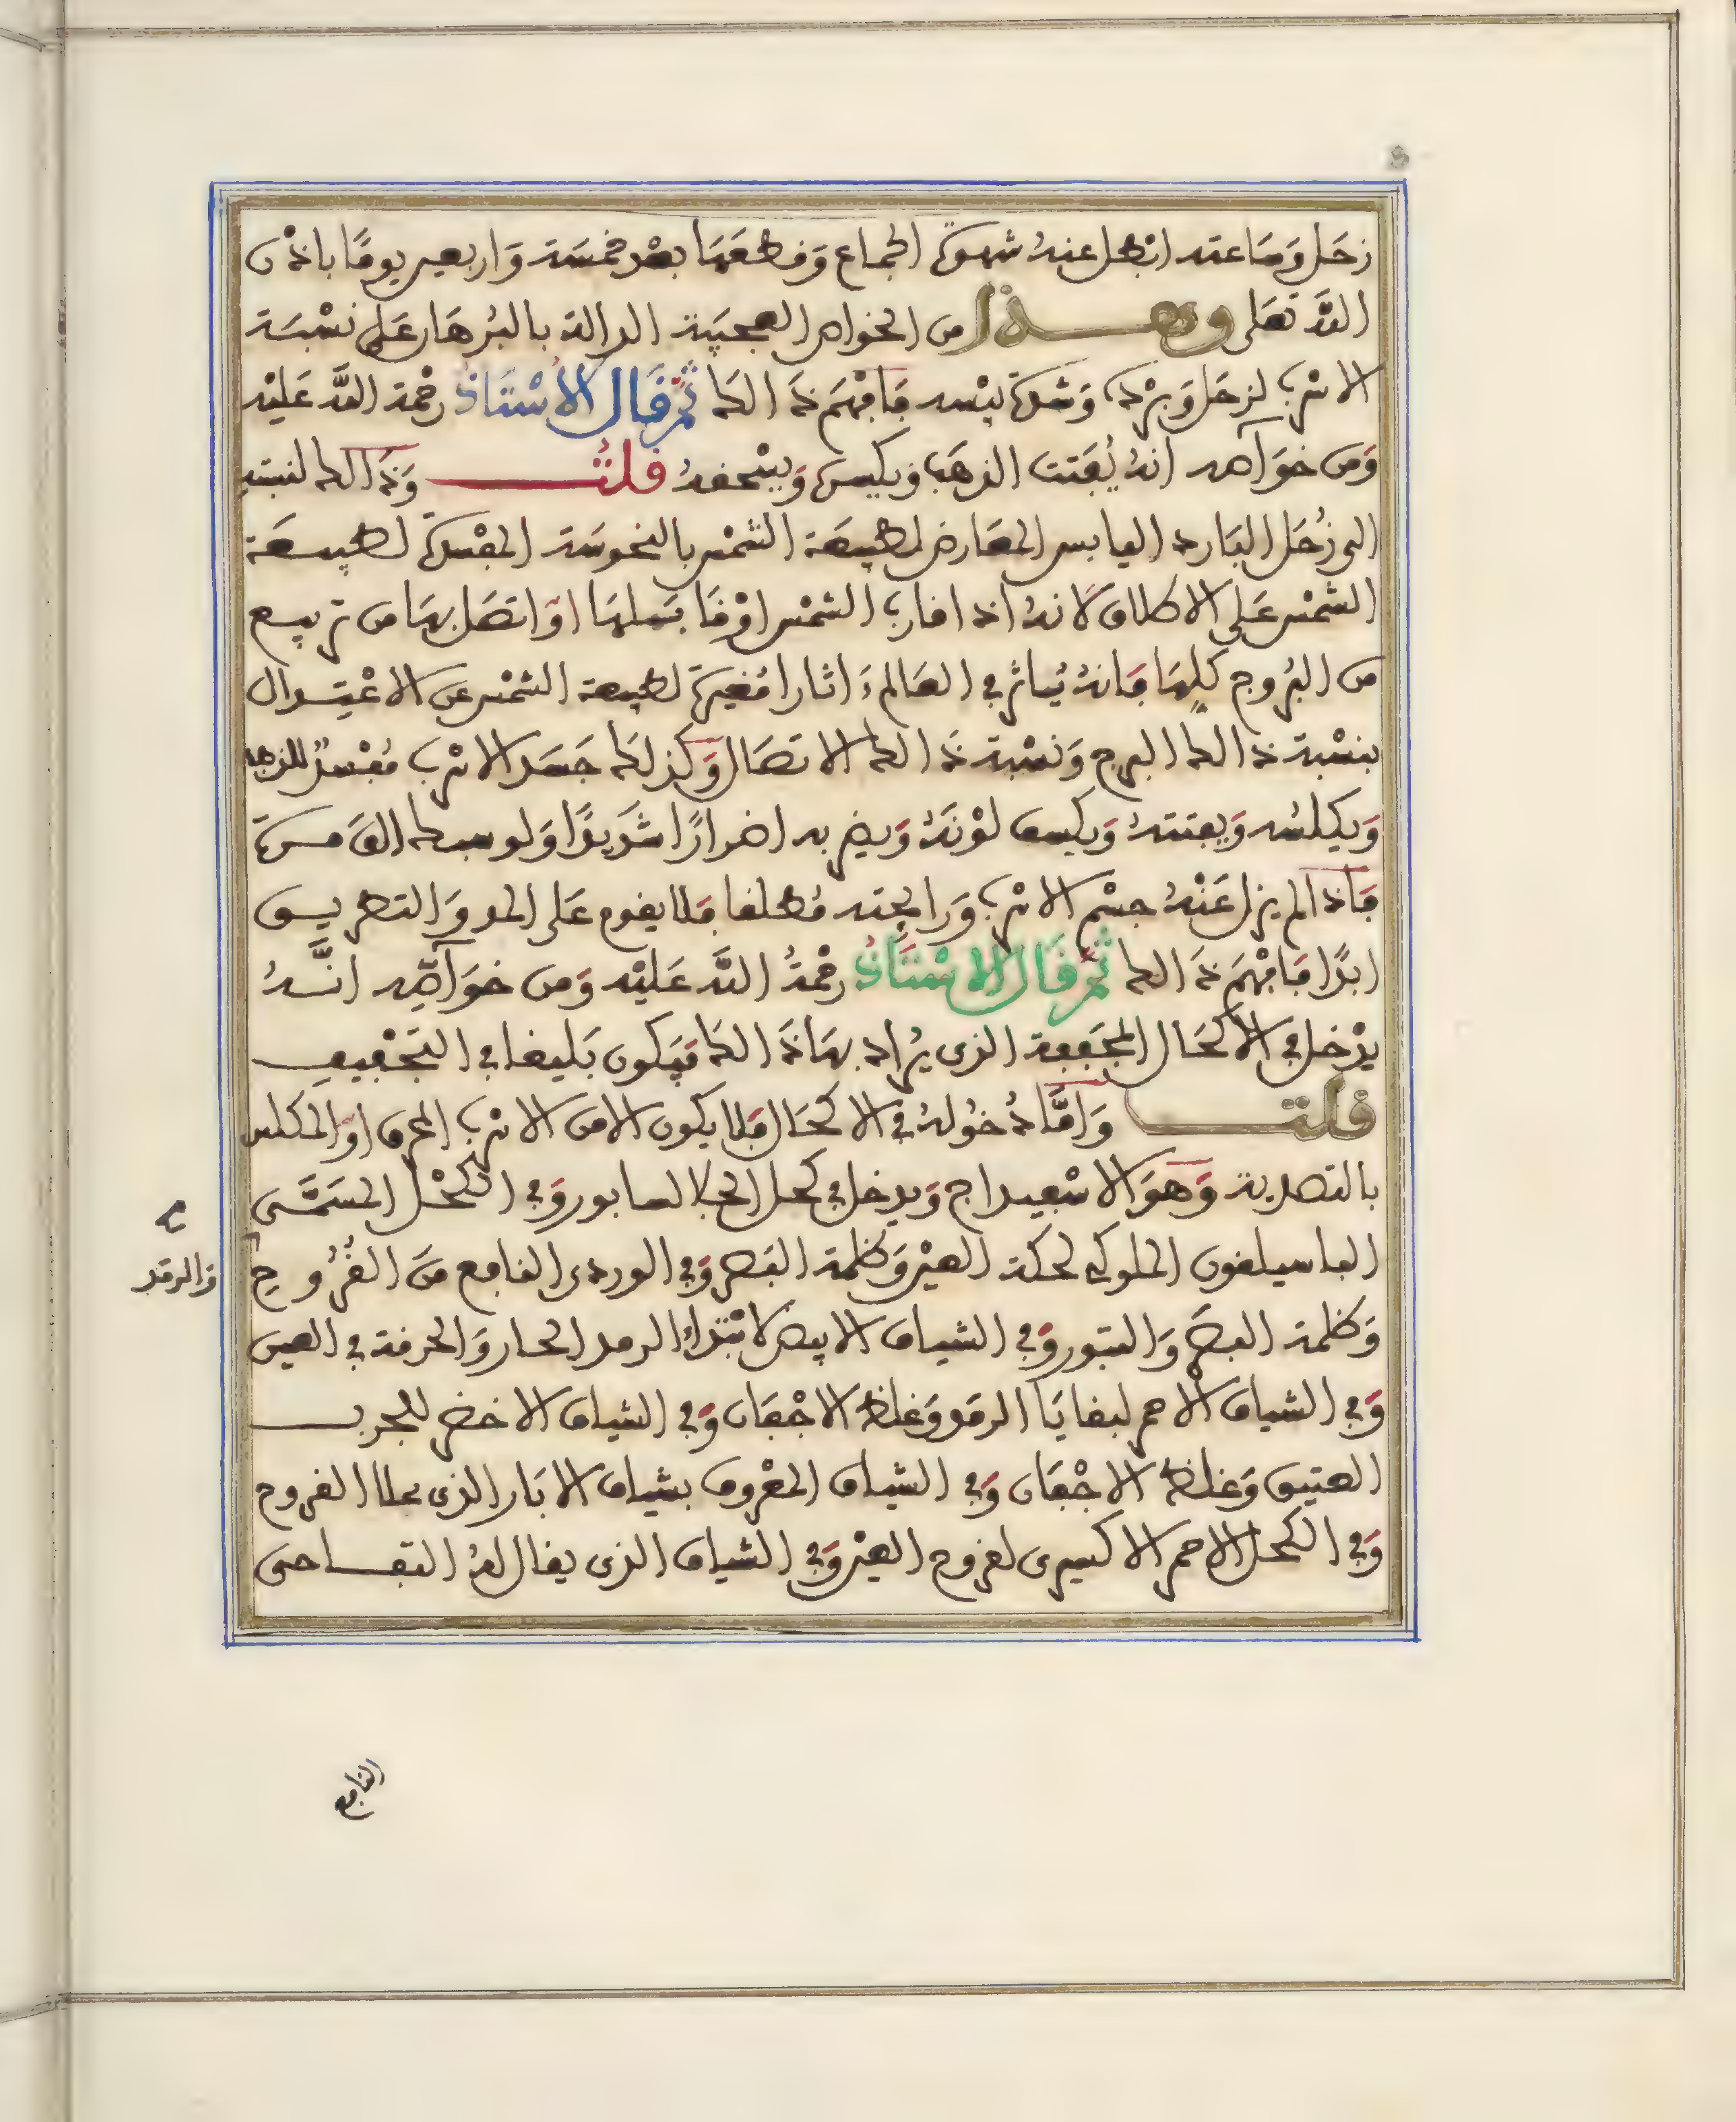 زحل وساعته ابطل عنه شهوة الجماع وقطعها بعد خمسة واربعين يوما باذن
الله تعلى وهذا من الخواص العجيبة الدالة بالبرهان على نسبة
الاسرب لزحل وبرده وشدة يبسه فافهم ذالك ثم قال الاستاذ رحمة الله عليه
ومن خواصه انه يفتت الذهب ويكلس ويسحقه قلت وذالك لنسبته
الى زحل البارد اليابس المعارض لطبيعة الشمس بالنحوسة المفسدة لطبيعة
الشمس على الاطلاق لانه اذا قارب الشمس او قابلها او اتصل بها من تربيع
من البروج كلها فانه يياثر في العالم ءاثارا مغيرة لطبيعة الشمس عن الاعتدال
بنسبة ذالك البرج ونسبة ذالك الاتصال وكذلك جسد الاسرب مفسد للذهب
ويكلسه ويفتته ويكسف لونه ويضر به اضرارا شديدا ولو سبك الف مرة
فاذا لم يزل عنه جسم الاسرب ورايحته مطلقا فلا يقوم على المد والتطريق
ابدا فافهم ذالك ثم قال الاستاذ رحمة الله عليه ومن خواصه انه
يدخل في الاكحال المجففة الذى يراد بها ذالك فيكون بليغا في التجفيف
قلت واما دخوله في الاكحال فلا يكون الا من الاسرب المحرق او المكلس
بالتصدية وهو الاسفيداج ويدخل في كحل الجلا السابور وفي الكحل المسمى
الباسيلقون الملوكى لحكة العين وظلمة البصر وفي الوردى النافع من القروح
وظلمة البصر والبثور وفي الشياف الابيض لابتداء الرمد الحار والحرقة في العين
وفي الشياف الاحمر لبقايا الرمد وغلظ الاجفان وفي الشياف الاخضر للجرب
العتيق وغلظ الاجفان وفي الشياف المعروف بشياف الابار الذى يملا القروح
وفي الكحل الاحمر الاكسيرى لقروح العين وفي الشياف الذى يقال له التفاحى
النافع